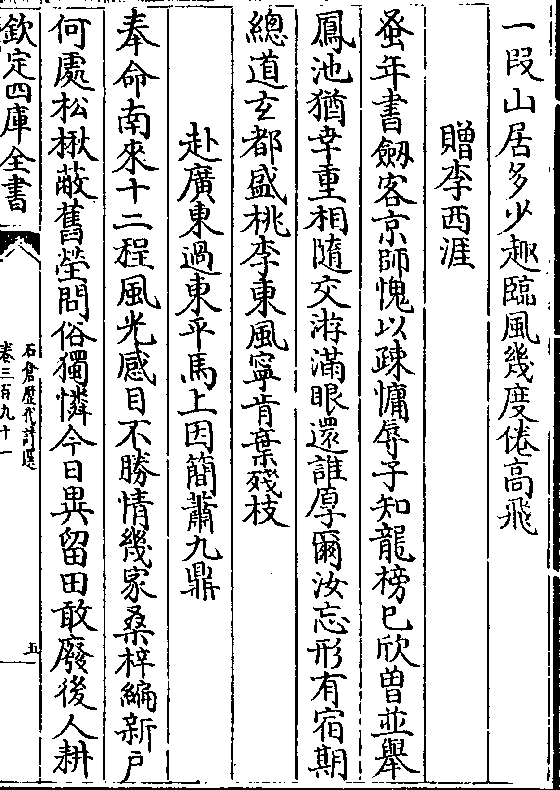 一叚山居多少趣臨風幾度倦高飛
贈李西涯
蚤年書劔客京師愧以疎慵辱子知龍榜已欣曽並舉
鳳池猶幸重相隨交㳺滿眼還誰厚爾汝忘形有宿期
總道玄都盛桃李東風寧肯葉殘枝
赴廣東過東平馬上因簡蕭九鼎
奉命南來十二程風光感目不勝情幾家桑梓編新戶
何處松楸蔽舊塋問俗獨憐今日異留田敢廢後人耕
欽定四庫全書
石倉歷代詩選
卷三百九十一
五